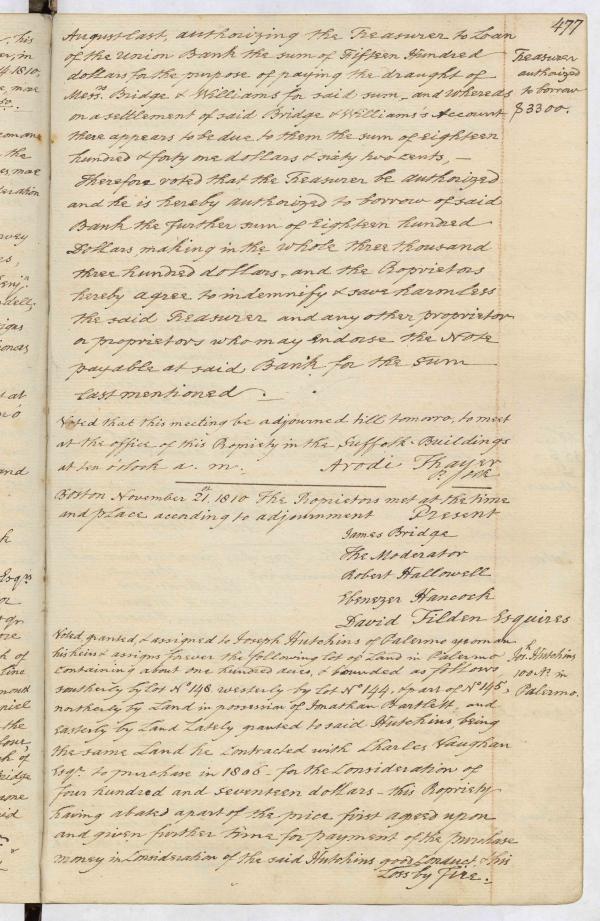 477
August last, authorizing the Treasurer to Loan
of the Union Bank the sum of Fifteen Hundred
dollars for the purpose of paying the draught of
Messrs. Bridge & Williams for said sum, and whereas
on a settlement of said Bridge & Williams's Account
there appears to be due to them the sum of eighteen
hundred & forty one dollars & sixty two cents, —
Therefore voted that the Treasurer be authorized
and he is hereby authorized to borrow of said
Bank the further sum of Eighteen hundred
Dollars, making in the whole three thousand
three hundred dollars, and the Propriet​ors
hereby agree to indemnify & save harmless
the said Treasurer and any other proprietor
or proprietors who may endorse the Note
payable at said Bank for the sum
last mentioned.
Treasurer
authorized
to borrow
$3300.
Voted that this meeting be adjourned till tomorro, to meet
at the office of this Propriety in the Suffolk Buildings
at ten o'clock a. m. Arodi Thayer
Boston November 21st, 1810 The Proprietors met at the time
and place according to adjournment Present
James Bridge
The Moderator
Robert Hallowell
Ebenezer Hancock
David Tilden Esquires
Voted, granted, & assigned to Joseph Hutchins of Palermo yeoman
his heirs & assigns forever the following lot of Land in Palermo
containing about one hundred acres, & bounded as follows
southerly by Lot No 148, westerly by Lot No 144, & part of No 145,
northerly by Land in possession of Jonathan Bartlett, and
easterly by Land Lately granted to said Hutchins being
the same Land he contracted with Charles Vaughan
Esqr. to purchase in 1806 - for the consideration of
four hundred and seventeen dollars - this Propriety
having abated a part of the price first agreed upon
and given further time for payment of the purchase
money in consideration of the said Hutchins good conduct & his
Loss by fire.
Josh. Hutchins
100 As. in
Palermo.